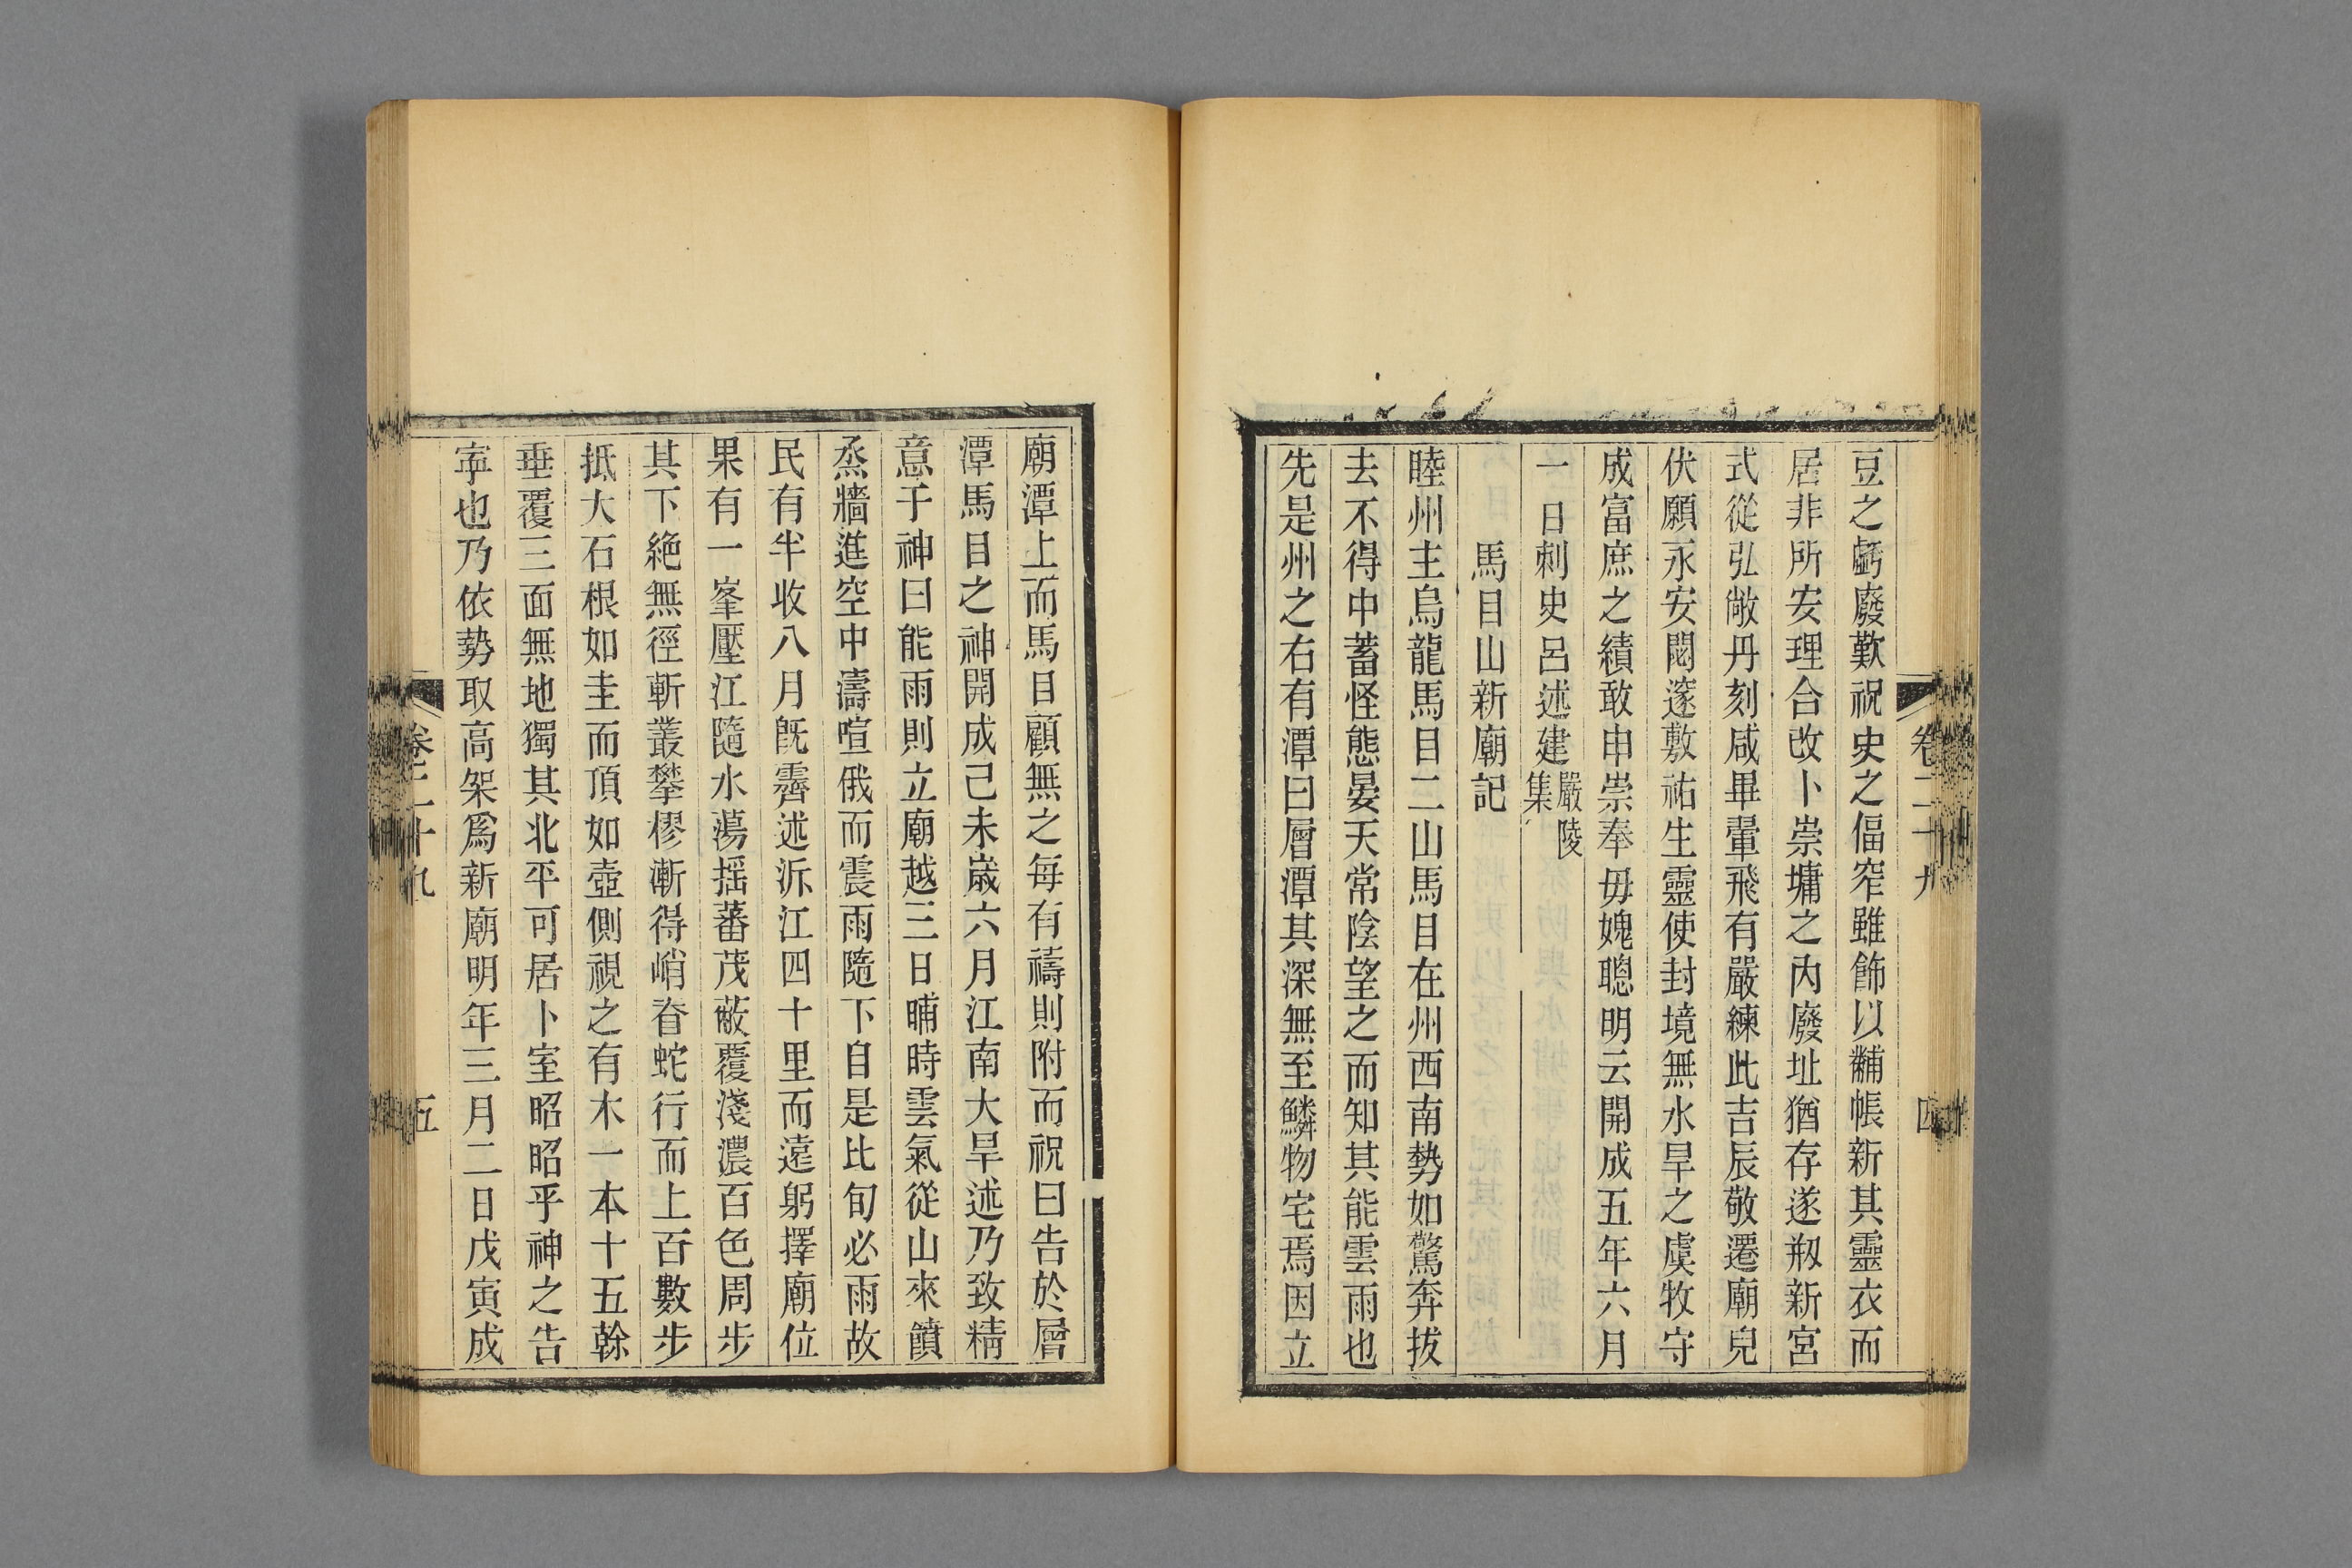 豆之虧廢歎祝史之偪窄雖飾以黼帳新其靈衣而
居非所安理合改卜崇墉之内廢址猶存遂刱新宮
式從弘敞丹刻咸畢翬飛有嚴練此吉辰敬遷廟皃
伏願永安閟邃敷祐生靈使封境無水旱之虞牧守
成富庶之績敢申崇奉毋媿聰明云開成五年六月
一日刺史呂述建嚴陵集
馬目山新廟記
睦州主烏龍馬目二山馬目在州西南勢如驚奔拔
去不得中蓄怪態晏天常陰望之而知其能雲雨也
先是州之右有潭曰層潭其深無至鱗物宅焉因立
卷二十九
四
廟潭上而馬目顧無之每有禱則附而祝曰告於層
潭馬目之神開成己未歲六月江南大旱述乃致精
意于神曰能雨則立廟越三日晡時雲氣從山來饙
烝牆進空中濤喧俄而震雨隨下自是比旬必雨故
民有半收八月既霽述泝江四十里而遠躬擇廟位
果有一峯壓江隨水蕩搖蕃茂蔽覆淺濃百色周步
其下絶無徑斬叢攀樛漸得峭脊蛇行而上百數步
抵大石根如圭而頂如壺側視之有木一本十五榦
垂覆三面無地獨其北平可居卜室昭昭乎神之告
寧也乃依勢取高架爲新廟明年三月二日戊寅成
卷二十九
五